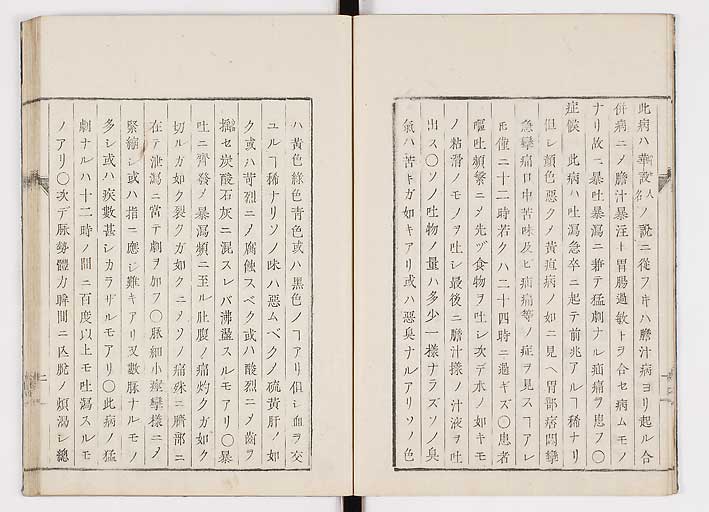 此病ハ華設人ノ說ニ從フキハ膽汁病ヨリ起ル合
併病ニノ膽汁暴注ト胃腸過敏トヲ合セ病ムモノ
ナリ故ニ暴吐暴瀉ニ兼テ猛劇ナル疝痛ヲ患フ〇
症候 此病ハ吐瀉急卒ニ起テ前兆アルヿ稀ナリ
但シ顏色惡クメ黃疸病ノ如ニ見ヘ胃部痞悶攣
急攣痛口中苦味及ヒ疝痛等ノ症ヲ見スヿアレ
𪜈僅ニ十二時若クハ二十四時ニ過ギズ〇患者
嘔吐頻繁ニノ先ヅ食物ヲ吐シ次デ水ノ如キモ
ノ粘滑ノモノヲ吐シ最後ニ膽汁樣ノ汁液ヲ吐
出ス〇ソノ吐物ノ量ハ多少一樣ナラズソノ臭
氣ハ苦キガ如キアリ或ハ惡臭ナルアリソノ色
ハ黃色綠色靑色或ハ黑色ノヿアリ但シ血ヲ交
ユルヿ稀ナリソノ味ハ惡ムベクノ硫黃肝ノ如
ク或ハ苛烈ニノ腐蝕スベク或ハ酸烈ニノ齒ヲ
損セ炭酸石灰ニ混スレバ沸盪スルモアリ〇暴
吐ニ齊發ノ暴瀉頻ニ至ル肚腹ノ痛灼クガ如ク
切ルガ如ク裂クガ如クニノソノ痛殊ニ臍部ニ
在テ泄瀉ニ當テ劇ヲ加フ〇脉細小痙攣樣ニノ
緊縮シ或ハ指ニ應シ難キアリ又數脉ナルモノ
多シ或ハ疾數甚シカラザルモアリ〇此病ノ猛
劇ナルハ十二時ノ間ニ百度以上モ吐瀉スルモ
ノアリ〇次デ脉勢體力瞬間ニ亾脫ノ煩渴シ總
二